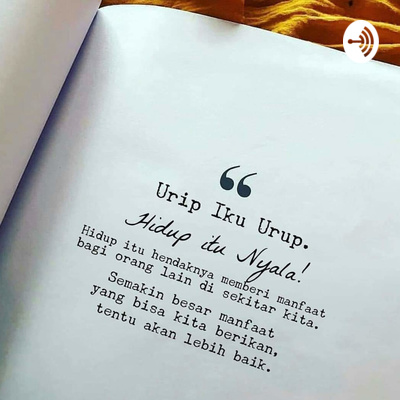 “
Urip Iku Urup.
Hidup itu Nyala!
Hidup itu hendaknya memberi manfaat
bagi orang lain di sekitar kita.
Semakin besar manfaat
yang bisa kita berikan,
tentu akan lebih baik.